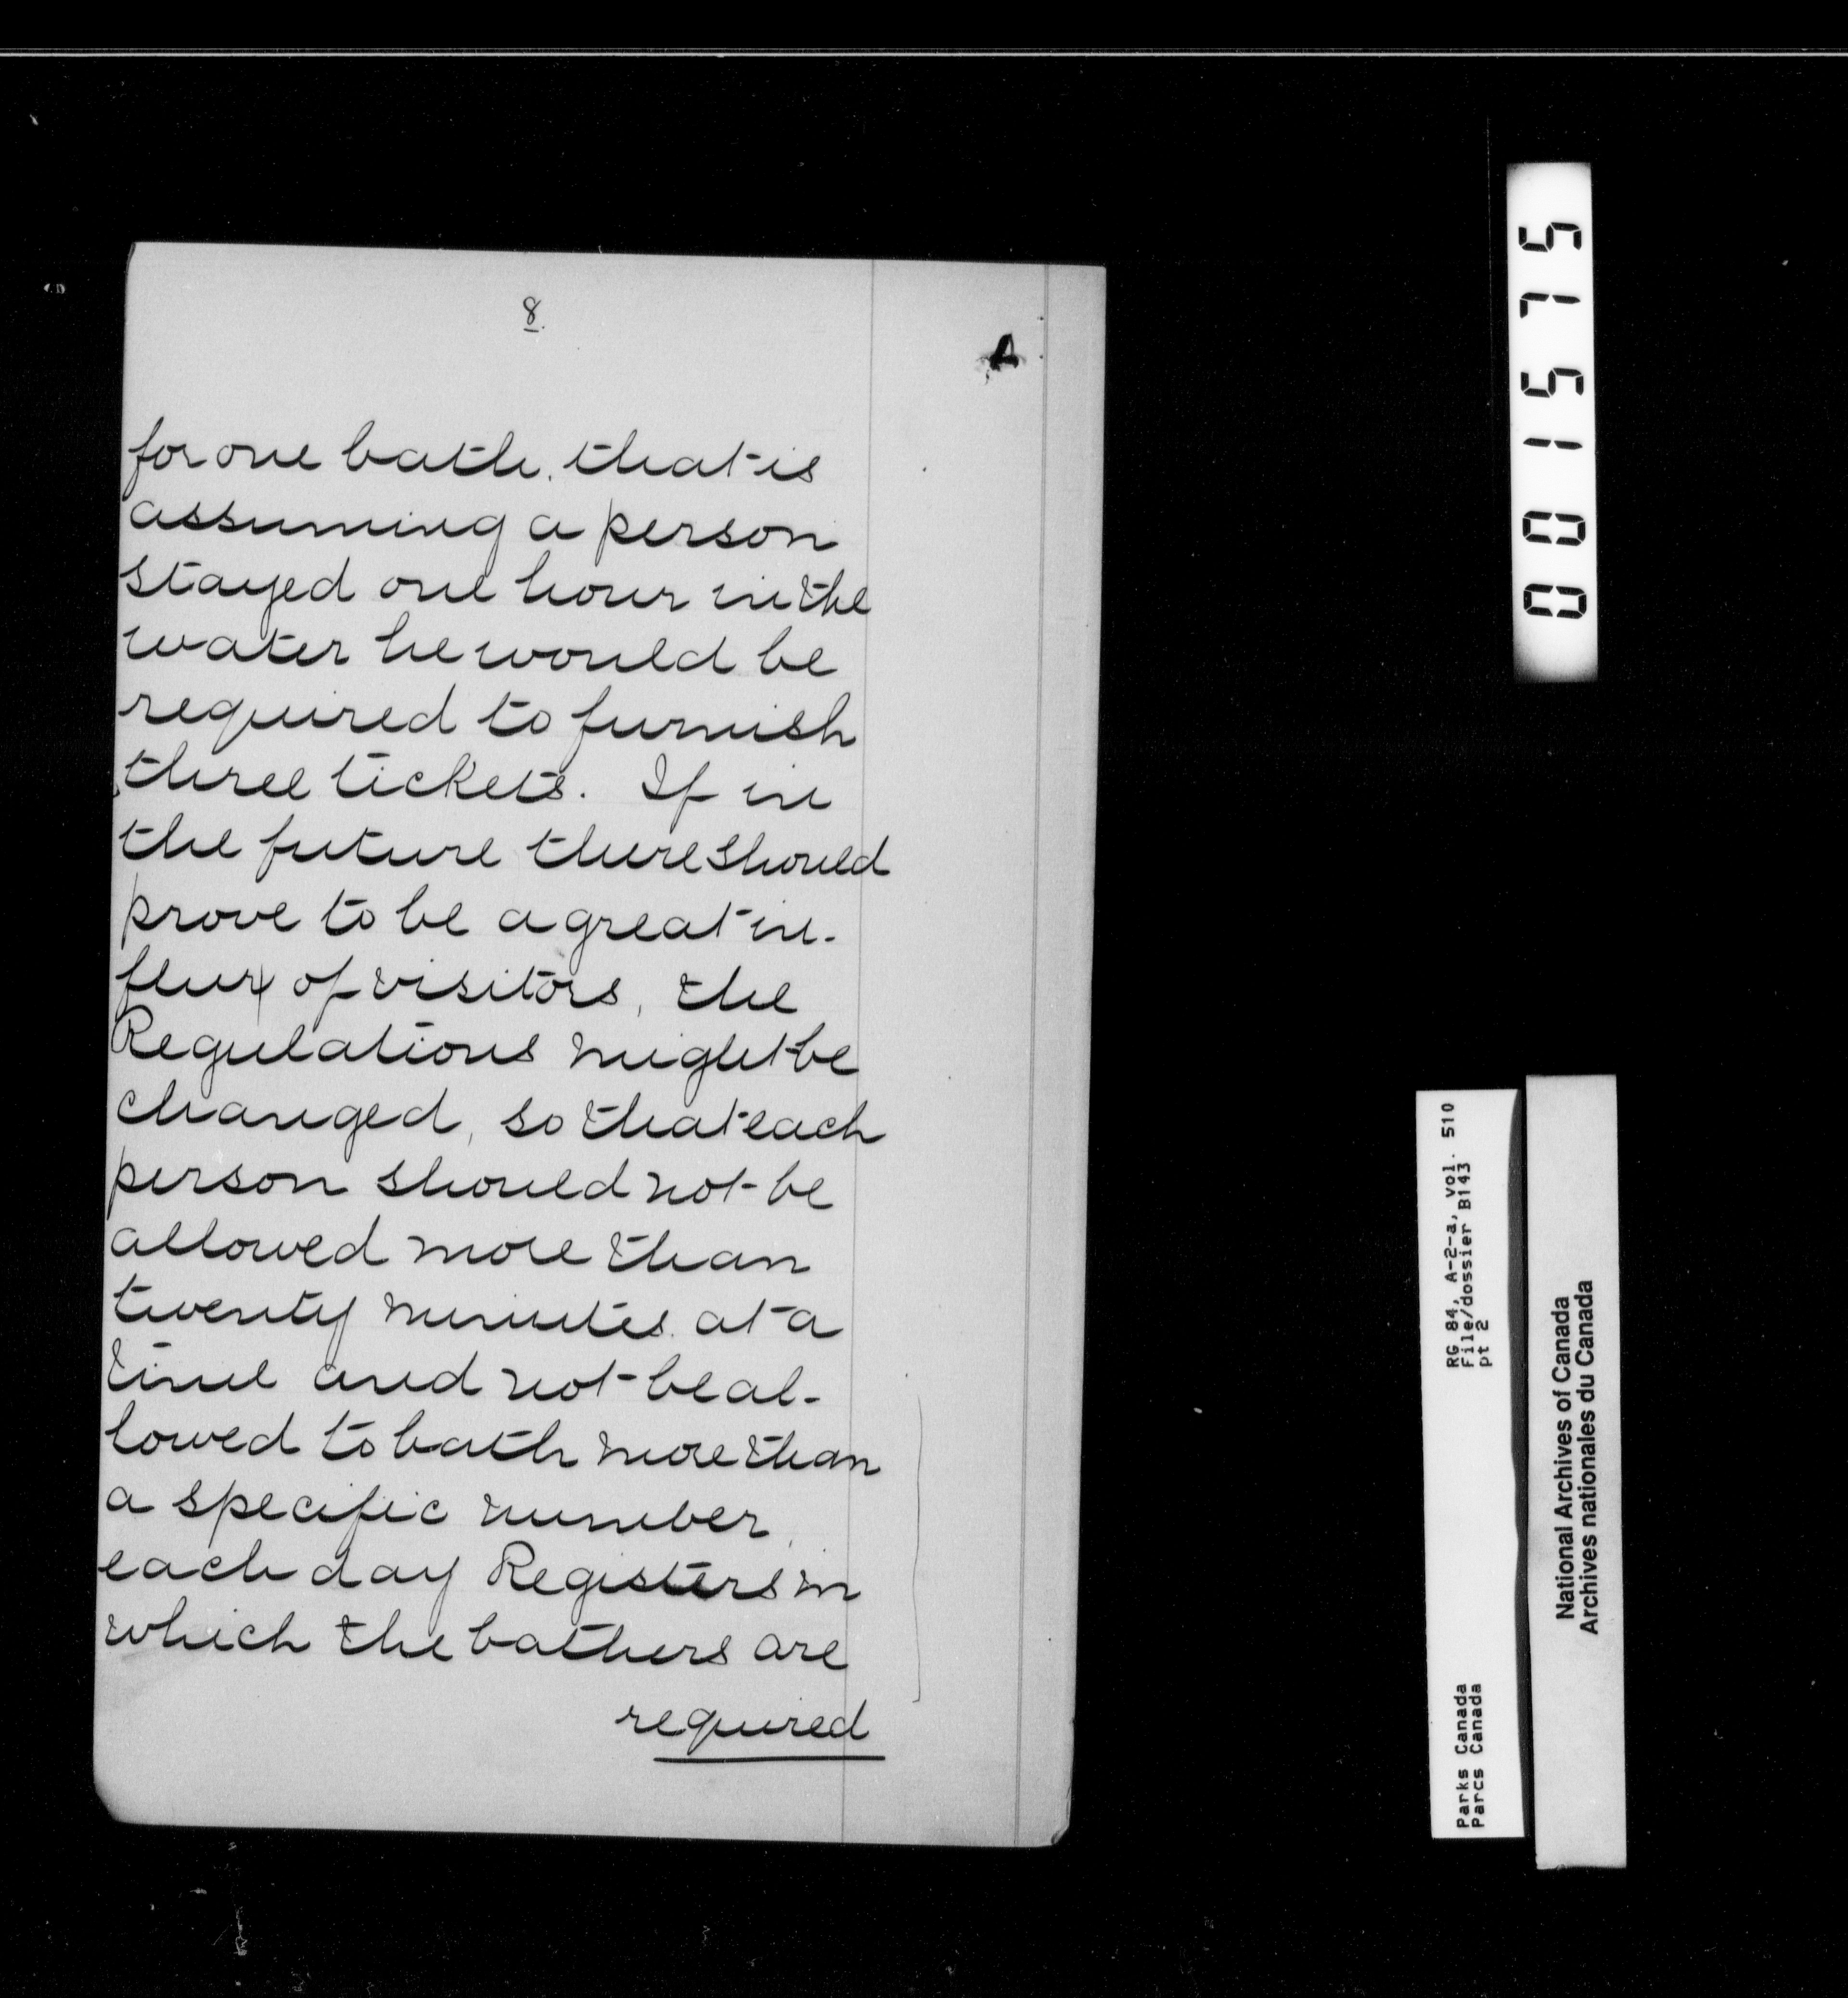 8.
for one bath. that is
assuming a person
stayed one hour in the
water he would be
required to furnish
three tickets. If in
the future there should
prove to be a great in-
flux of visitors, the
Regulations might be
changed, so that each
person should not be
allowed more than
twenty minutes. at a
time and not be al-
lowed to bath more than
a specific number,
each day Registers in
which the bathers are
required
001575
RG 84, A-2-a, vol. 510
File/dossier B143
pt 2
Parks Canada
Parcs Canada
National Archives of Canada
Archives nationales du Canada